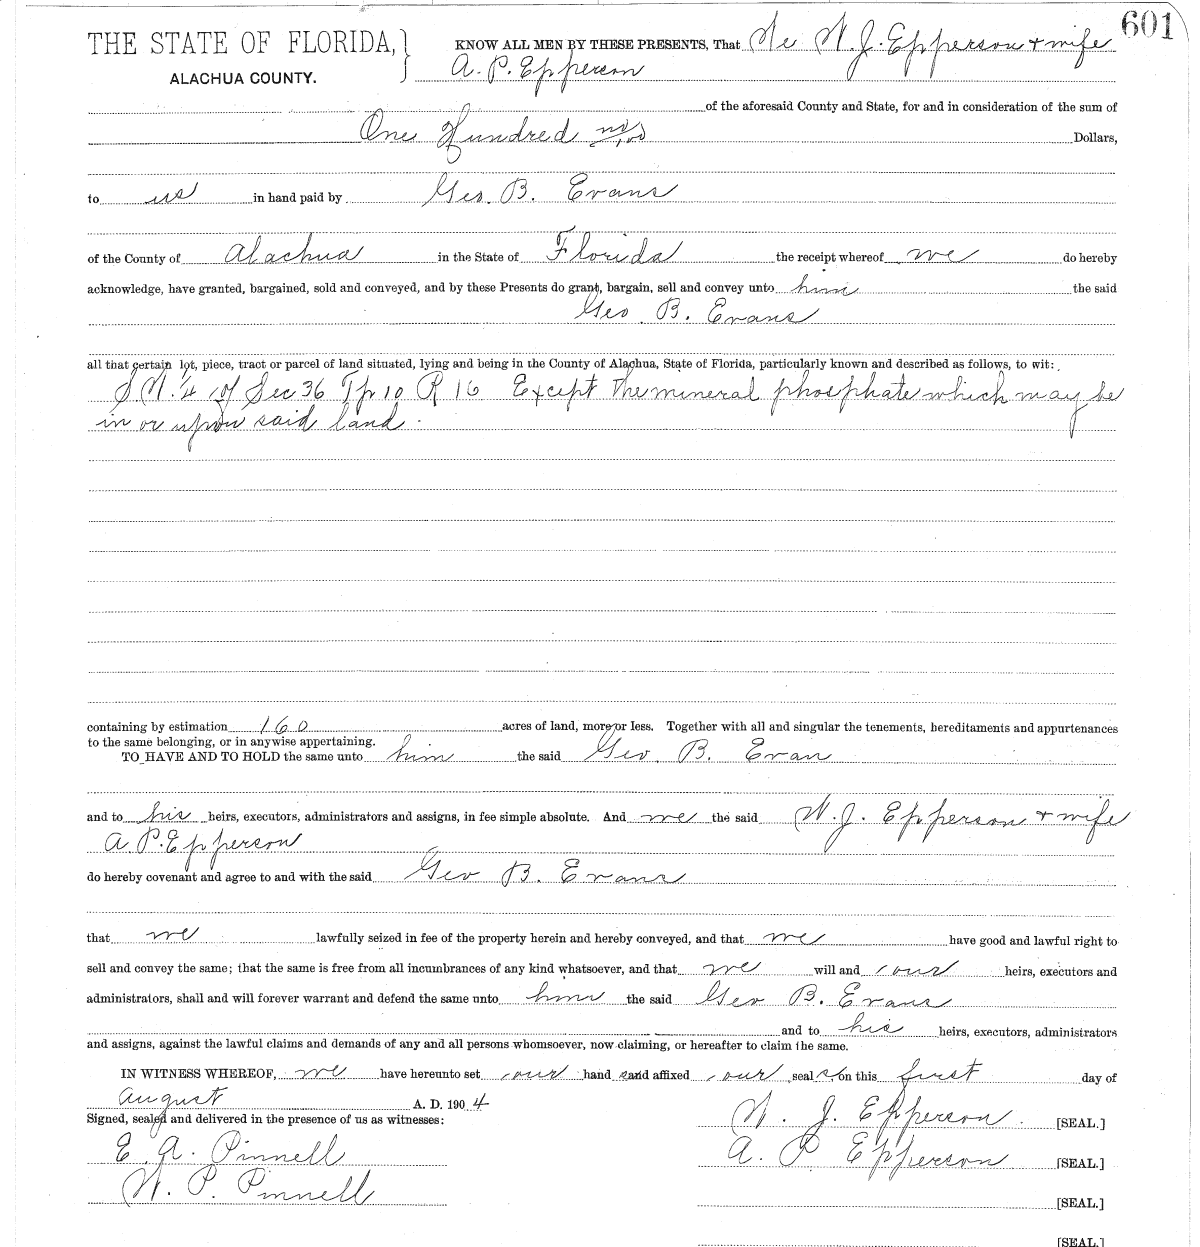 601
THE STATE OF FLORIDA, } KNOW ALL MEN BY THESE PRESENTS, That We W. J. Epperson + wife
ALACHUA COUNTY. A. P. Epperson
of the aforesaid County and State, for and in consideration of the sum of
One Hundred no/00 Dollars,
to us in hand paid by Geo. B. Evans
of the County of Alachua in the State of Florida the receipt whereof we do hereby
acknowledge, have granted, bargained, sold and conveyed, and by these Presents do grant, bargain, sell and convey unto him the said
Geo B. Evans
all that certain lot, piece, tract or parcel of land situated, lying and being in the County of Alachua, State of Florida, particularly known and described as follows, to wit:
S W. 4 of Sec 36 Tp 10 R 16 Except the mineral phosphate which may be
in or upon said land.
containing by estimation 160 acres of land, more or less. Together with all and singular the tenements, hereditaments and appurtenances
to the same belonging, or in anywise appertaining.
TO HAVE AND TO HOLD the same unto him the said Geo. B. Evan
and to his heirs, executors, administrators and assigns, in fee simple absolute. And we the said W. J. Epperson + wife
A P. Epperson
do hereby covenant and agree to and with the said Geo B. Evans
that we lawfully seized in fee of the property herein and hereby conveyed, and that we have good and lawful right to
sell and convey the same; that the same is free from all incumbrances of any kind whatsoever, and that we will and our heirs, executors and
administrators, shall and will forever warrant and defend the same unto him the said Geo B. Evans
and to his heirs, executors, administrators
and assigns, against the lawful claims and demands of any and all persons whomsoever, now claiming, or hereafter to claim the same.
IN WITNESS WHEREOF, we have hereunto set our hand s and affixed our seal s on this first day of
August A. D. 1904
Signed, sealed and delivered in the presence of us as witnesses:
W. J. Epperson [SEAL.]
E. A. Pinnell
A. P Epperson [SEAL.]
W. P. Pinnell
[SEAL.]
[SEAL.]